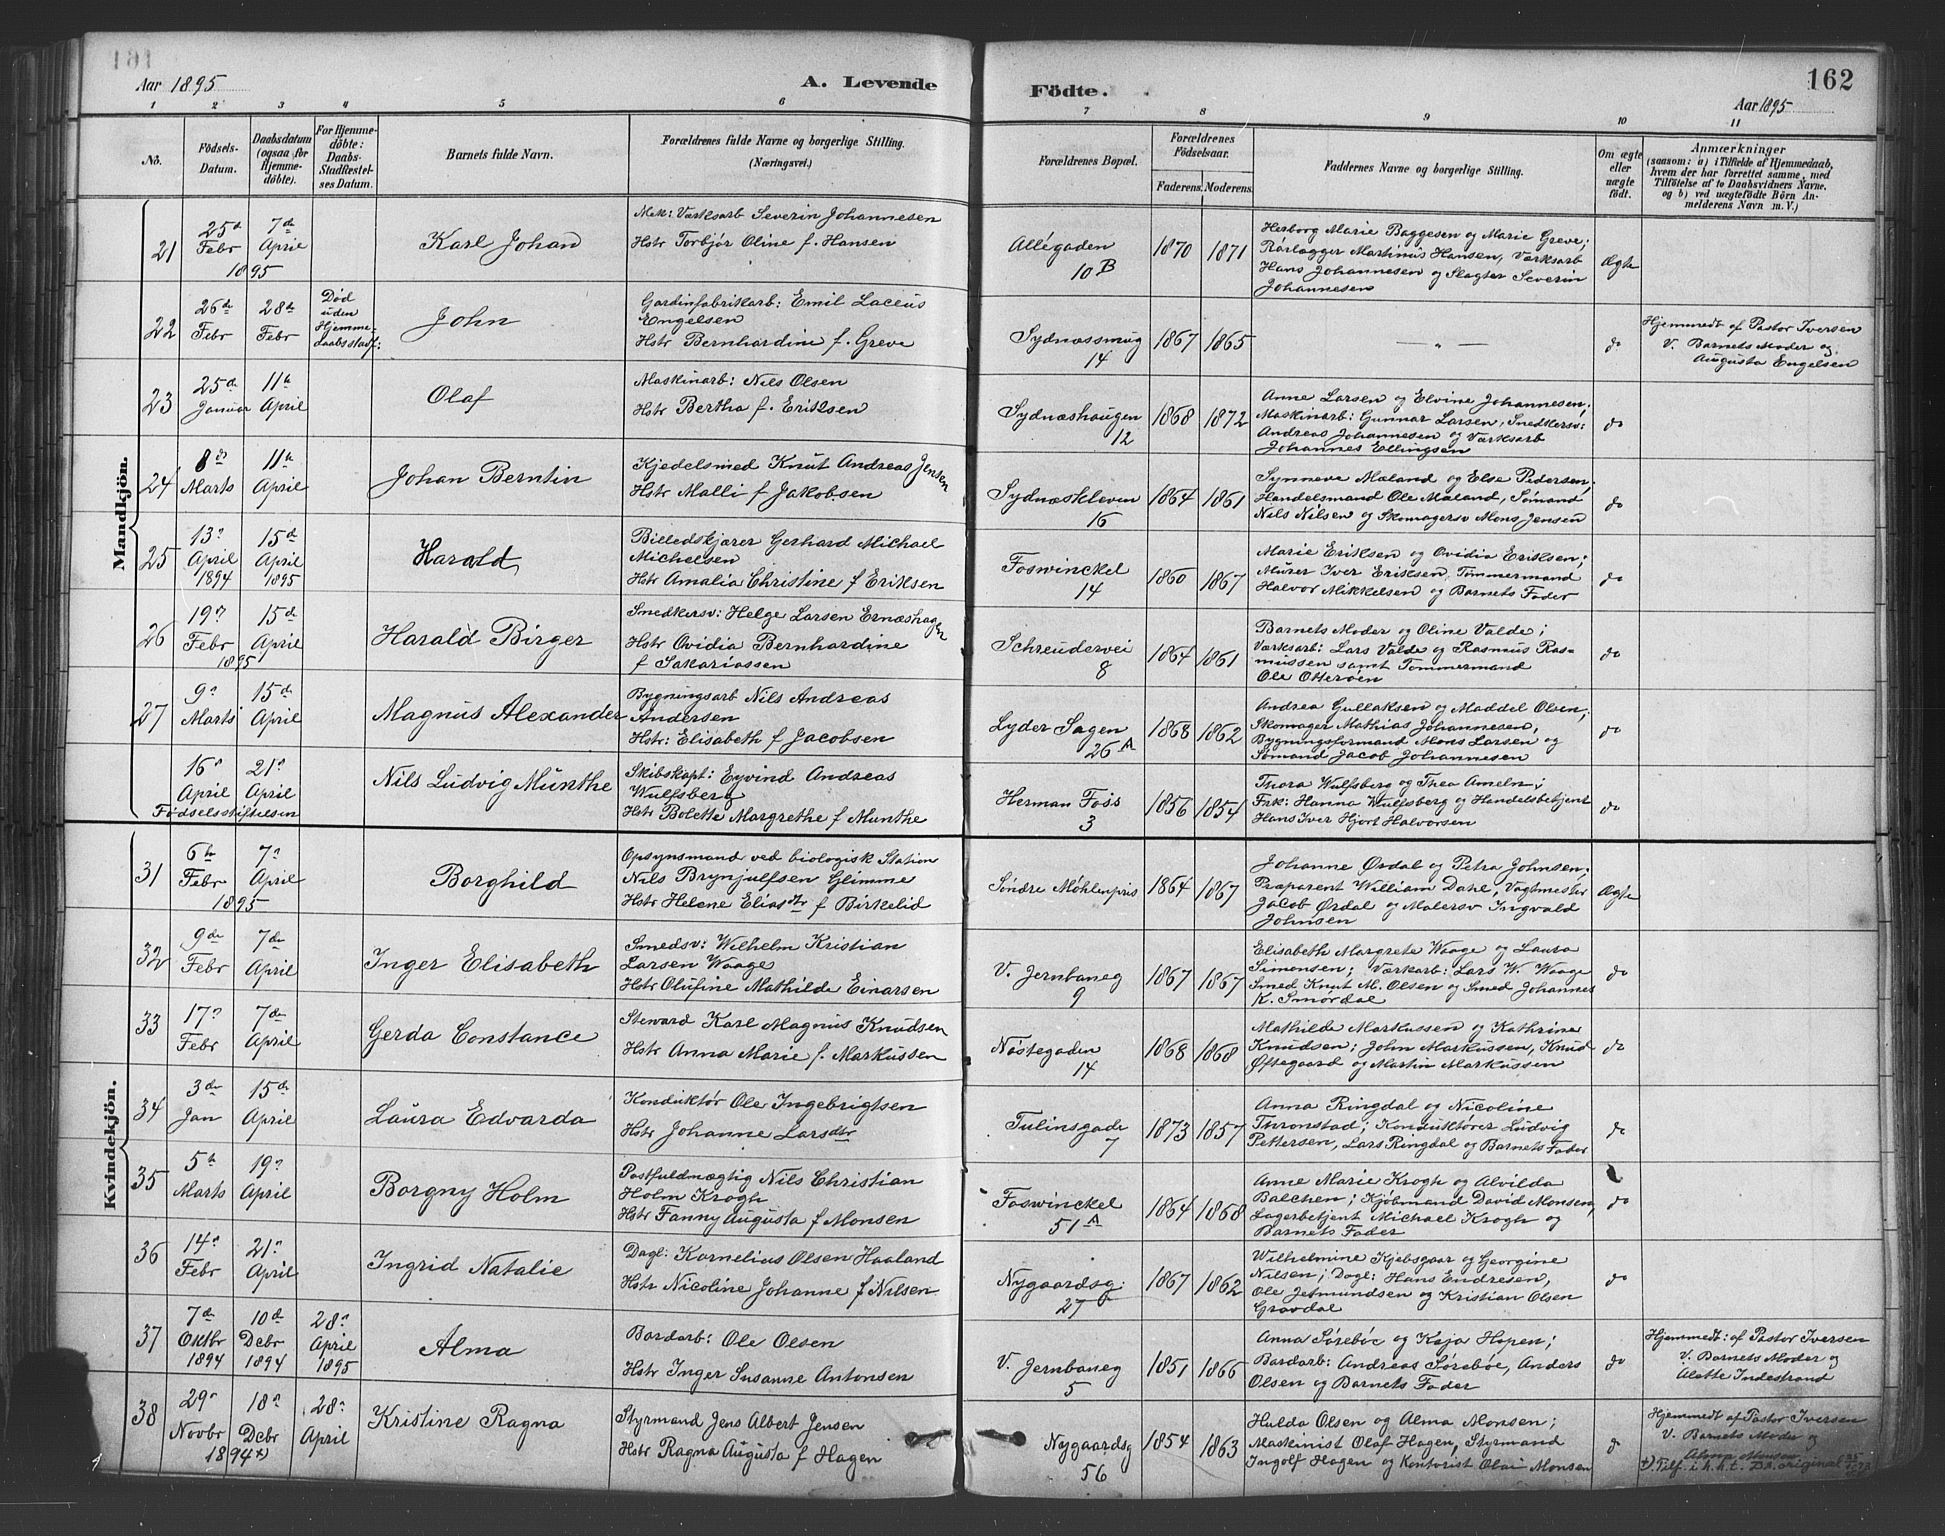 161
Aar 1895
A. Levende
Födte.
162
Aar 1895
1 2 3 4 5 6 7 8 9 10 11
No.
Födsels-
Datum.
Daabsdatum
(ogsaa for
Hjemme-
döbte).
For Hjemme-
döbte:
Daabs-
Stadfæstel-
ses Datum.
Barnets fulde Navn.
Forældrenes fulde Navne og borgerlige Stilling.
(Næringsvei.)
Forældrenes Bopæl.
Forældrenes
Födselsaar.
Faderens. Moderens.
Faddernes Navne og borgerlige Stilling.
Om ægte
eller
uægte
födt.
Anmærkninger
(saasom: a) i Tilfælde af Hjemmedaab,
hvem der har forrettet samme, med
Tilföielse af to Daabsvidners Navne,
og b) ved uægtefödte Börn An-
melderens Navn m. V.)
Mandkjön.
21
25d
Febr
1895
7de
April
Karl Johan
Mek: Værksarb Severin Johannesen
Hstr Torbjør Oline f. Hansen
Allégaden
10 B
1870 1871
Herborg Marie Baggesen og Marie Greve;
Rørlægger Martinus Hansen, Værksarb
Hans Johannesen og Slagter Severin
Johannesen
Ægte
22
26de
Febr
28de
Febr
Død
uden
Hjemme-
daabsstadf:
John
Gardinfabrikarb: Emil Laceus
Engelsen
Hstr Bernhardine f. Greve
Sydnæssmug
14
1867 1865
— „ —
do
Hjemmedt af Pastor Iversen
V. Barnets Moder og
Augusta Engelsen
23
25de
Januar
11te
April
Olaf
Maskinarb: Nils Olsen
Hstr Bertha f. Eriksen
Sydnæshaugen
12
1868 1872
Anne Larsen og Elvine Johannesen;
Maskinarb: Gunnar Larsen, Snedkersv:
Andreas Johannesen og Værksarb
Johannes Ellingsen
do
24
8de
Marts
11te
April
Johan Berntin
Kjedelsmed Knut Andreas Jensen
Hstr Malli f Jakobsen
Sydnæskleven
16
1864 1861
Synneve Mæland og Else Pedersen;
Handelsmand Ole Mæland, Sømand
Nils Nilsen og Skomagersv Mons Jensen
do
25
13n
April
1894
15de
April
1895
Harald
Billedskjærer Gerhard Michael
Michelsen
Hstr Amalia Christine f Eriksen
Foswinckel
14
1860 1867
Marie Eriksen og Ovidia Eriksen;
Murer Iver Eriksen, Tømmermand
Halvor Mikkelsen og Barnets Fader
do
26
19n
Febr
1895
15de
April
Harald Birger
Snedkersv: Helge Larsen Ernæshagen
Hstr Ovidia Bernhardine
f Sakariassen
Schreudervei
8
1864 1861
Barnets Moder og Oline Valde;
Værksarb: Lars Valde og Rasmus Ras-
mussen samt Tømmermand
Ole Otterøen
do
27
9n
Marts
15de
April
Magnus Alexander
Bygningsarb Nils Andreas
Andersen
Hstr: Elisabeth f Jacobsen
Lyder Sagen
26 A
1868 1862
Andrea Gullaksen og Maddel Olsen;
Skomager Mathias Johannesen,
Bygningsformand Mons Larsen og
Sømand Jacob Johannesen
do
16n
April
21n
April
Fødselsstiftelsen
Nils Ludvig Munthe
Skibskapt: Eyvind Andreas
Wulfsberg
Hstr Bolette Margrethe f Munthe
Herman Foss
3
1856 1854
Thora Wulfsberg og Thea Ameln;
Frk: Hanna Wulfsberg og Handelsbetjent
Hans Iver Hjort Halvorsen
do
Kvindekjön.
31
6te
Febr
1895
7n
April
Borghild
Opsynsmand ved biologisk Station
Nils Brynjulfsen Glimme
Hstr Helene Eliasdtr f Birkelid
Søndre Møhlenpris
1864 1867
Johanne Ørdal og Petra Johnsen;
Præparent William Dahl, Vagtmester
Jacob Ørdal og Malersv Ingvald
Johnsen
Ægte
32
9de
Febr
7de
April
Inger Elisabeth
Smedsv: Wilhelm Kristian
Larsen Waage
Hstr Olufine Mathilde Einarsen
V. Jernbaneg
9
1867 1867
Elisabeth Margrete Waage og Laura
Simonsen; Værkarb: Lars W. Waage
Smed Knut M. Olsen og Smed Johannes
K. Smørdal
do
33
17n
Febr
7de
April
Gerda Constance
Steward Karl Magnus Knudsen
Hstr Anna Marie f. Markussen
Nøstegaden
14
1868 1868
Mathilde Markussen og Kathrine
Knudsen; John Markussen, Knud
Øftegaard og Martin Markussen
do
34
3de
Jan
15de
April
Laura Edvarda
Konduktør Ole Ingebrigtsen
Hstr Johanne Larsdtr
Tulinsgade
7
1873 1857
Anna Ringdal og Nicoline
Thronstad; Konduktører Ludvig
Pettersen, Lars Ringdal og Barnets Fader
do
35
5te
Marts
19n
April
Borgny Holm
Postfuldmægtig Nils Christian
Holm Krogh
Hstr Fanny Augusta f Monsen
Foswinckel
51 A
1864 1868
Anne Marie Krogh og Alvilda
Balchen; Kjøbmand David Monsen,
Lagerbetjent Michael Krogh og
Barnets Fader
do
36
14n
Febr
21n
April
Ingrid Natalie
Dagl: Kornelius Olsen Haaland
Hstr Nicoline Johanne f Nilsen
Nygaardsg:
27
1867 1862
Wilhelmine Kjebsgaar og Georgine
Nilsen; Dagl: Hans Endresen,
Ole Jetmundsen og Kristian Olsen
Gravdal
do
37
7de
Oktbr
1894
10de
Debr
1894
28n
April
1895
Alma
Bordarb: Ole Olsen
Hstr Inger Susanne Antonsen
V. Jernbaneg
5
1851 1866
Anna Sørebøe og Kaja Hopen;
Bordarb: Andreas Sørebøe, Anders
Olsen og Barnets Fader
do
Hjemmedt: af Pastor Iversen
V. Barnets Moder og
Alette Indestrand
38
29n
Novbr
1894 x)
18n
Debr
28n
April
Kristine Ragna
Styrmand Jens Albert Jensen
Hstr Ragna Augusta f Hagen
Nygaardsg
56
1854 1863
Hulda Olsen og Alma Monsen;
Maskinist Olaf Hagen, Styrmand
Ingolf Hagen og Kontorist Olai Monsen
do
Hjemmedt af Pastor Iversen
V. Barnets Moder og
Alma Monsen
x). Tilf. i h.h.t. D.A. original